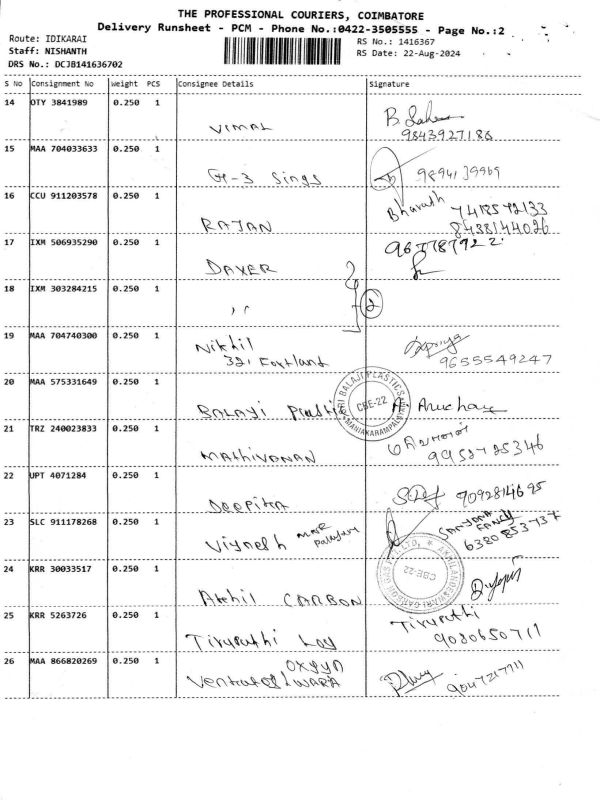 THE PROFESSIONAL COURIERS, COIMBATORE
Delivery Runsheet - PCM - Phone No.:0422-3505555 - Page No.:2
Route: IDIKARAI
RS No.: 1416367
Staff: NISHANTH
RS Date: 22-Aug-2024
DRS No.: DCJB141636702
S No Consignment No Weight PCS Consignee Details Signature
14 OTY 3841989 0.250 1 VIMAL B
9843927186
15 MAA 704033633 0.250 1 G-3 Sings 9894139969
16 CCU 911203578 0.250 1 RAJAN Bharath 7418572133
8438144026
17 IXM 506935290 0.250 1 DAXER
18 IXM 303284215 0.250 1 〃 2
19 MAA 704740300 0.250 1 Nikhil
321
9655549247
20 MAA 575331649 0.250 1 BALAJI Plastic
SRI BALAJI PLASTICS
CBE-22
MANIAKARAMPALAYAM
21 TRZ 240023833 0.250 1 MATHIVANAN
22 UPT 4071284 0.250 1 DEEPIKA 7092814695
23 SLC 911178268 0.250 1 Vignesh
FANCY
6380853737
24 KRR 30033517 0.250 1 Akhil CARBON
CBE-22
25 KRR 5263726 0.250 1 Tirupathi Tirupathi
9080650711
26 MAA 866820269 0.250 1